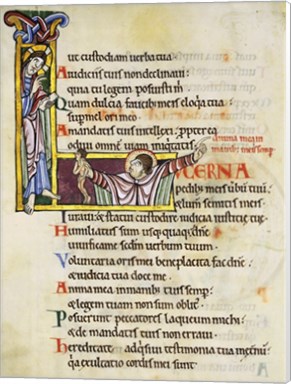 ut custodiam uerba tua
A iudiciis tuis non declinaui:
quia tu legem posuisti m
Quam dulcia faucibus meis eloquia tua:
super mel ori meo
A mandatis tuis intellexi: ppterea
odiui omnē uiam iniquitatis
anima mea in
manib; meis semp
LUCERNA
pedib; meis uerbū tuū:
& lumen semitis meis
Iuraui: & statui custodire iudicia iusticie tue
Humiliatus sum usquequaque dne:
uiuifica me scdm uerbum tuum
Uoluntaria oris mei beneplacita fac dne:
& iudicia tua doce me
Anima mea in manib; tuis semp:
& legem tuam non sum oblit
Posuerunt peccatores laqueum michi:
& de mandatis tuis non erraui
hereditate adqsiui testimonia tua ineternū:
qa exultatio cordis mei sunt